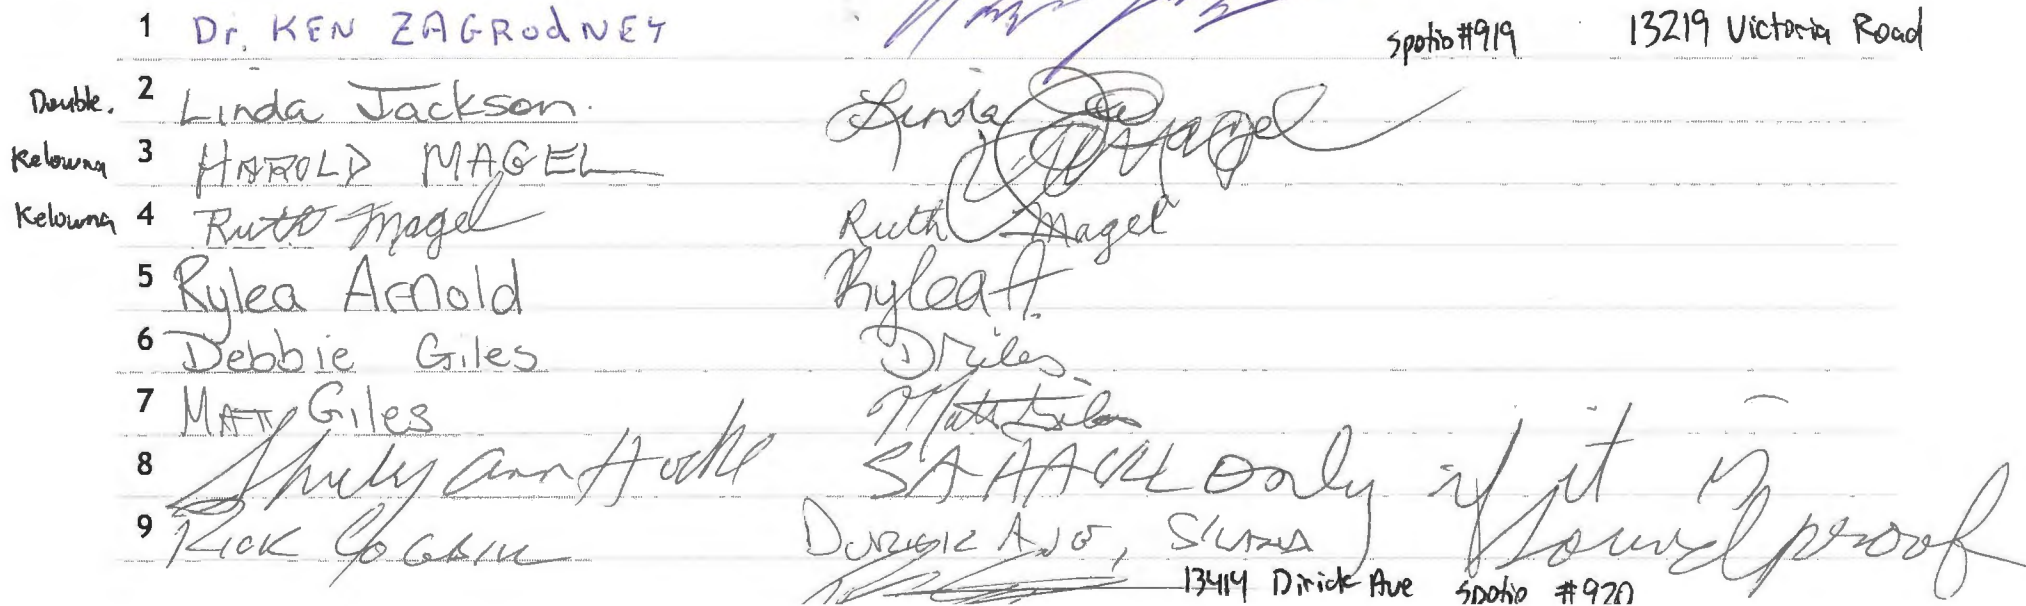 1 Dr. KEN ZAGRODNEY spotio #919 13219 Victoria Road
Double. 2 Linda Jackson. Linda
Kelowna 3 HAROLD MAGEL H Magel
Kelowna 4 Ruth Magel Ruth Magel
5 Rylea Arnold Rylea A.
6 Debbie Giles DGiles
7 MATT Giles Matt Giles
8 Ann only if it is
9 Rick AVE, Sound proof
13414 Dirick Ave spotio #920